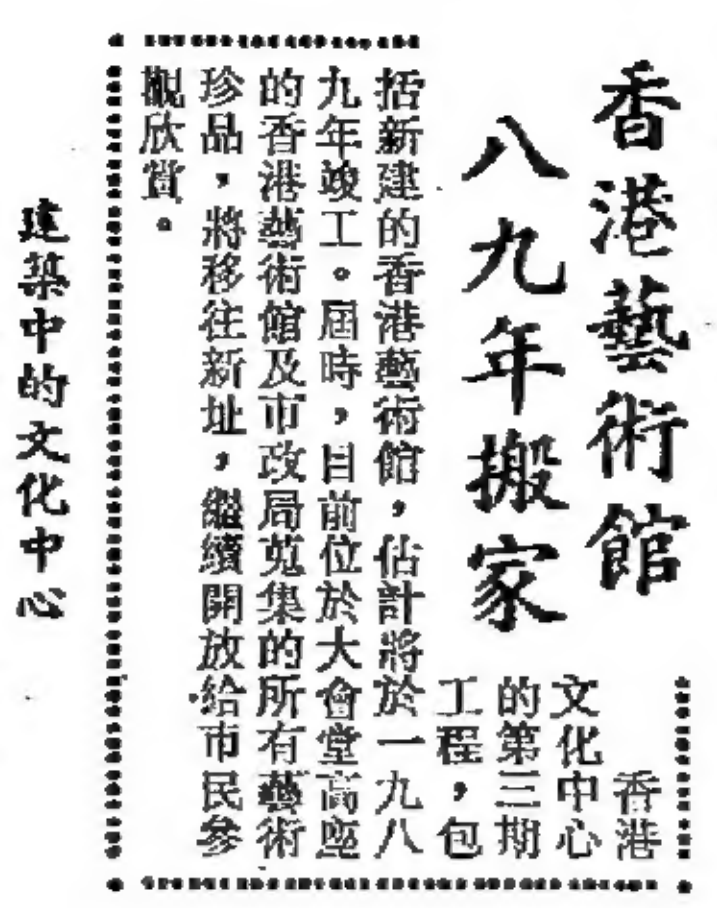 香港藝術館
八九年搬家
香港
文化中心
的第三期
工程，包
括新建的香港藝術館，估計將於一九八
九年竣工。屆時，目前位於大會堂高座
的香港藝術館及市政局蒐集的所有藝術
珍品，將移往新址，繼續開放給市民參
觀欣賞。
建築中的文化中心